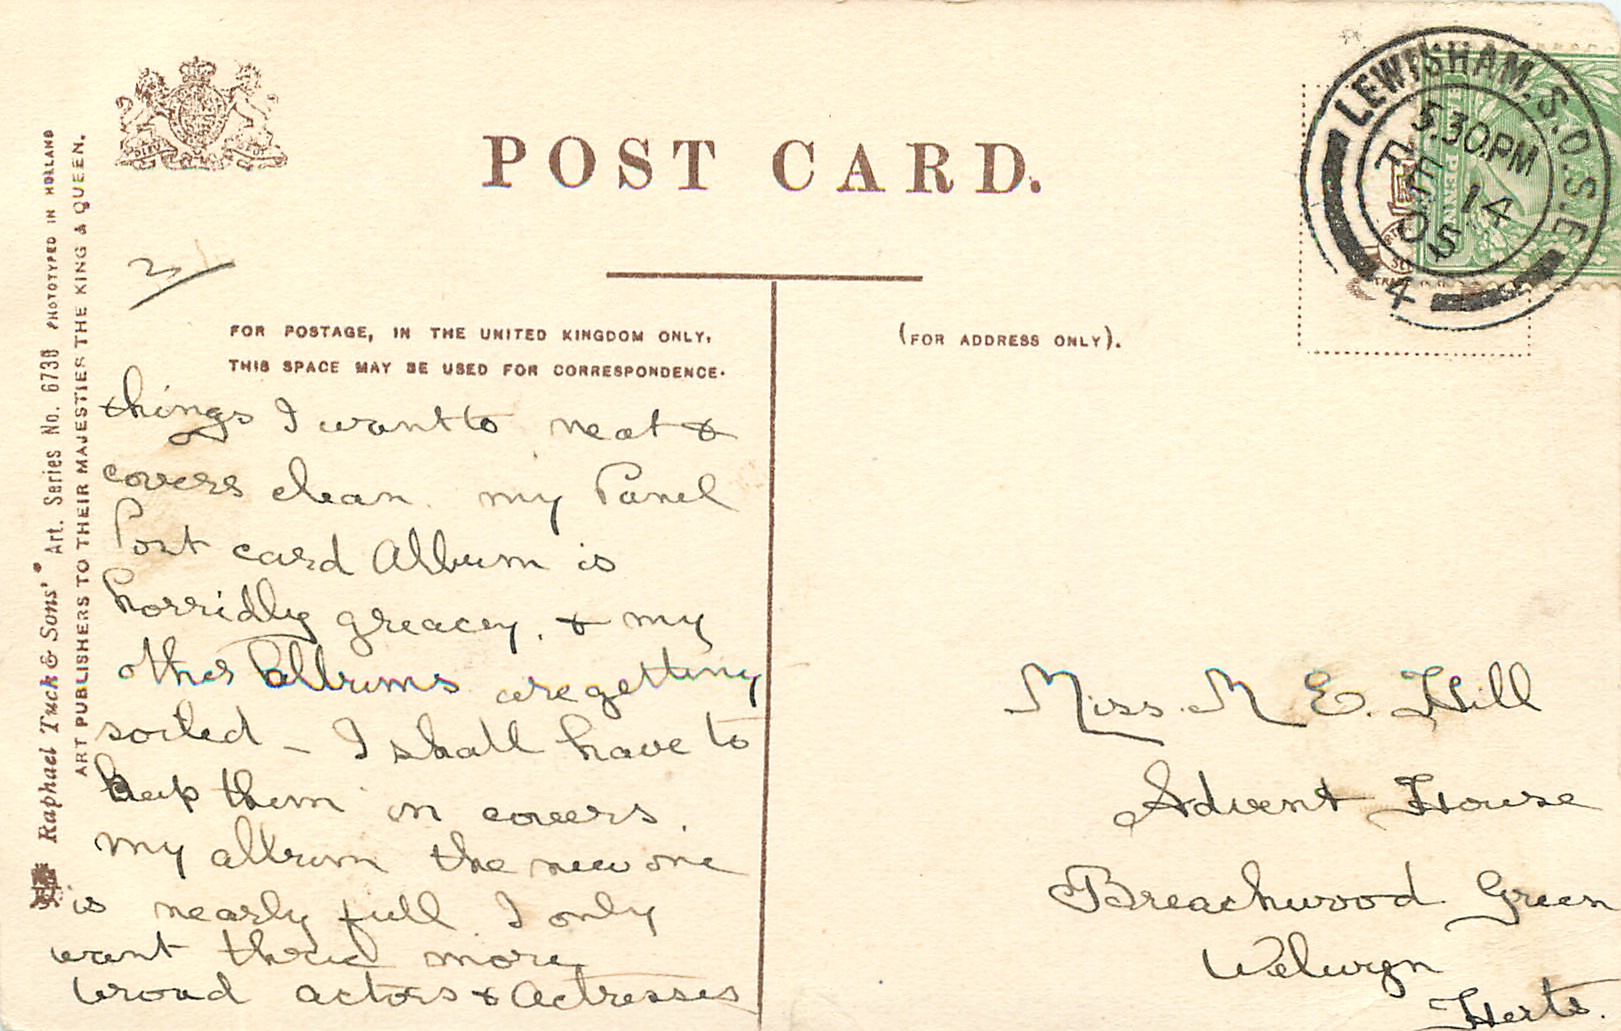 POST CARD.
LEWISHAM. S.O. S.E
5.30.PM
FE 14
05
4
DIEV ET
FOR POSTAGE, IN THE UNITED KINGDOM ONLY,
THIS SPACE MAY BE USED FOR CORRESPONDENCE.
(FOR ADDRESS ONLY).
things I want to neat &
covers clean. my Panel
Post card Album is
horridly greacey, & my
other Albums are getting
soiled - I shall have to
keep them in covers.
my album the new one
is nearly full I only
want three more
broad actors & Actresses
Miss. M E. Hill
Advent House
Breachwood Green
Welwyn
Herts.
Raphael Tuck & Sons' Art. Series No. 6738 PHOTOTYPED IN HOLLAND
ART PUBLISHERS TO THEIR MAJESTIES THE KING & QUEEN.